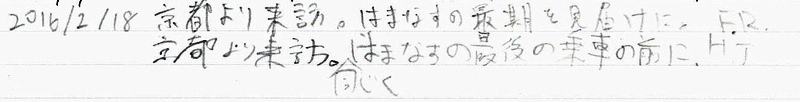 2016/2/18 京都より来訪。はまなすの最期を見届けに。 F.R.
京都より来訪。はまなすの最後の乗車の前に、H.T
同じく